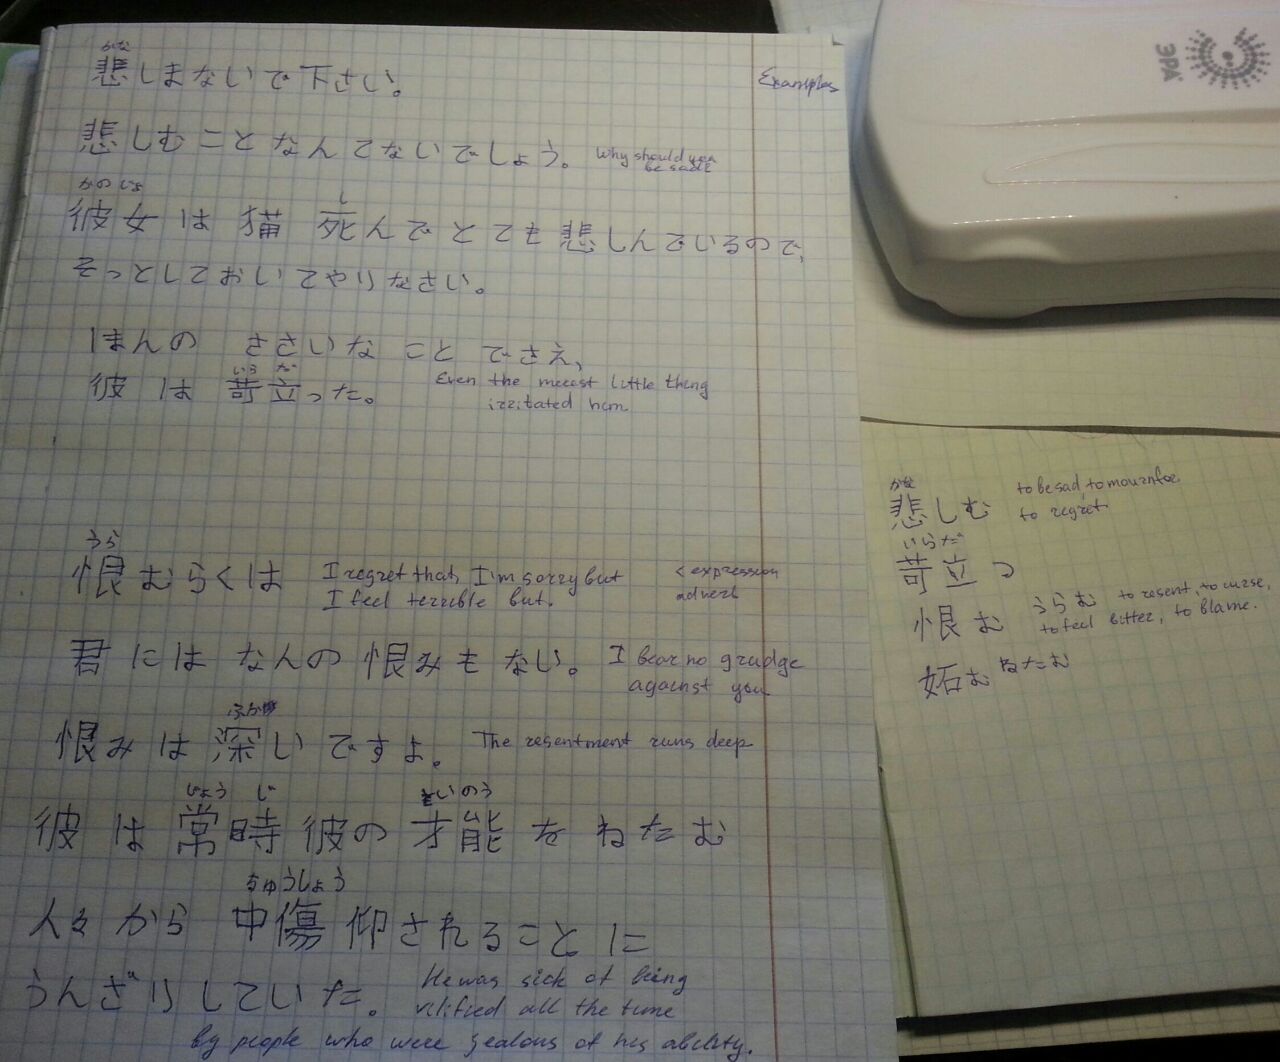 かな
悲しまないで下さい。
Examples
悲しむことなんてないでしょう。 Why should you
be sad?
かのじょ
彼女は猫 死んでとても悲しんでいるので、
し
そっとしてはいてやりなさい。
ほんの ささいな こと でさえ、
いら だ
彼 は 苛立った。 Even the merest little thing
irritated him
うら
恨むらくは I regret that, I'm sorry but
I feel terrible but.
< expression
adverb
君 には なんの 恨みもない。 I bear no grudge
against you
ふか
恨みは 深いですよ。 The resentment runs deep
じょう じ さいのう
彼 は 常時 彼の 才能 を ねたむ
ちゅうしょう
人々 から 中傷 仰されること に
うんざりしていた。 He was sick of being
vilified all the time
by people who were jealous of his ability.
ЭРА
かな
悲しむ to be sad, to mourn for
to regret
いらだ
苛立つ
恨む うらむ to resent, to curse,
to feel bitter, to blame.
妬む ねたむ